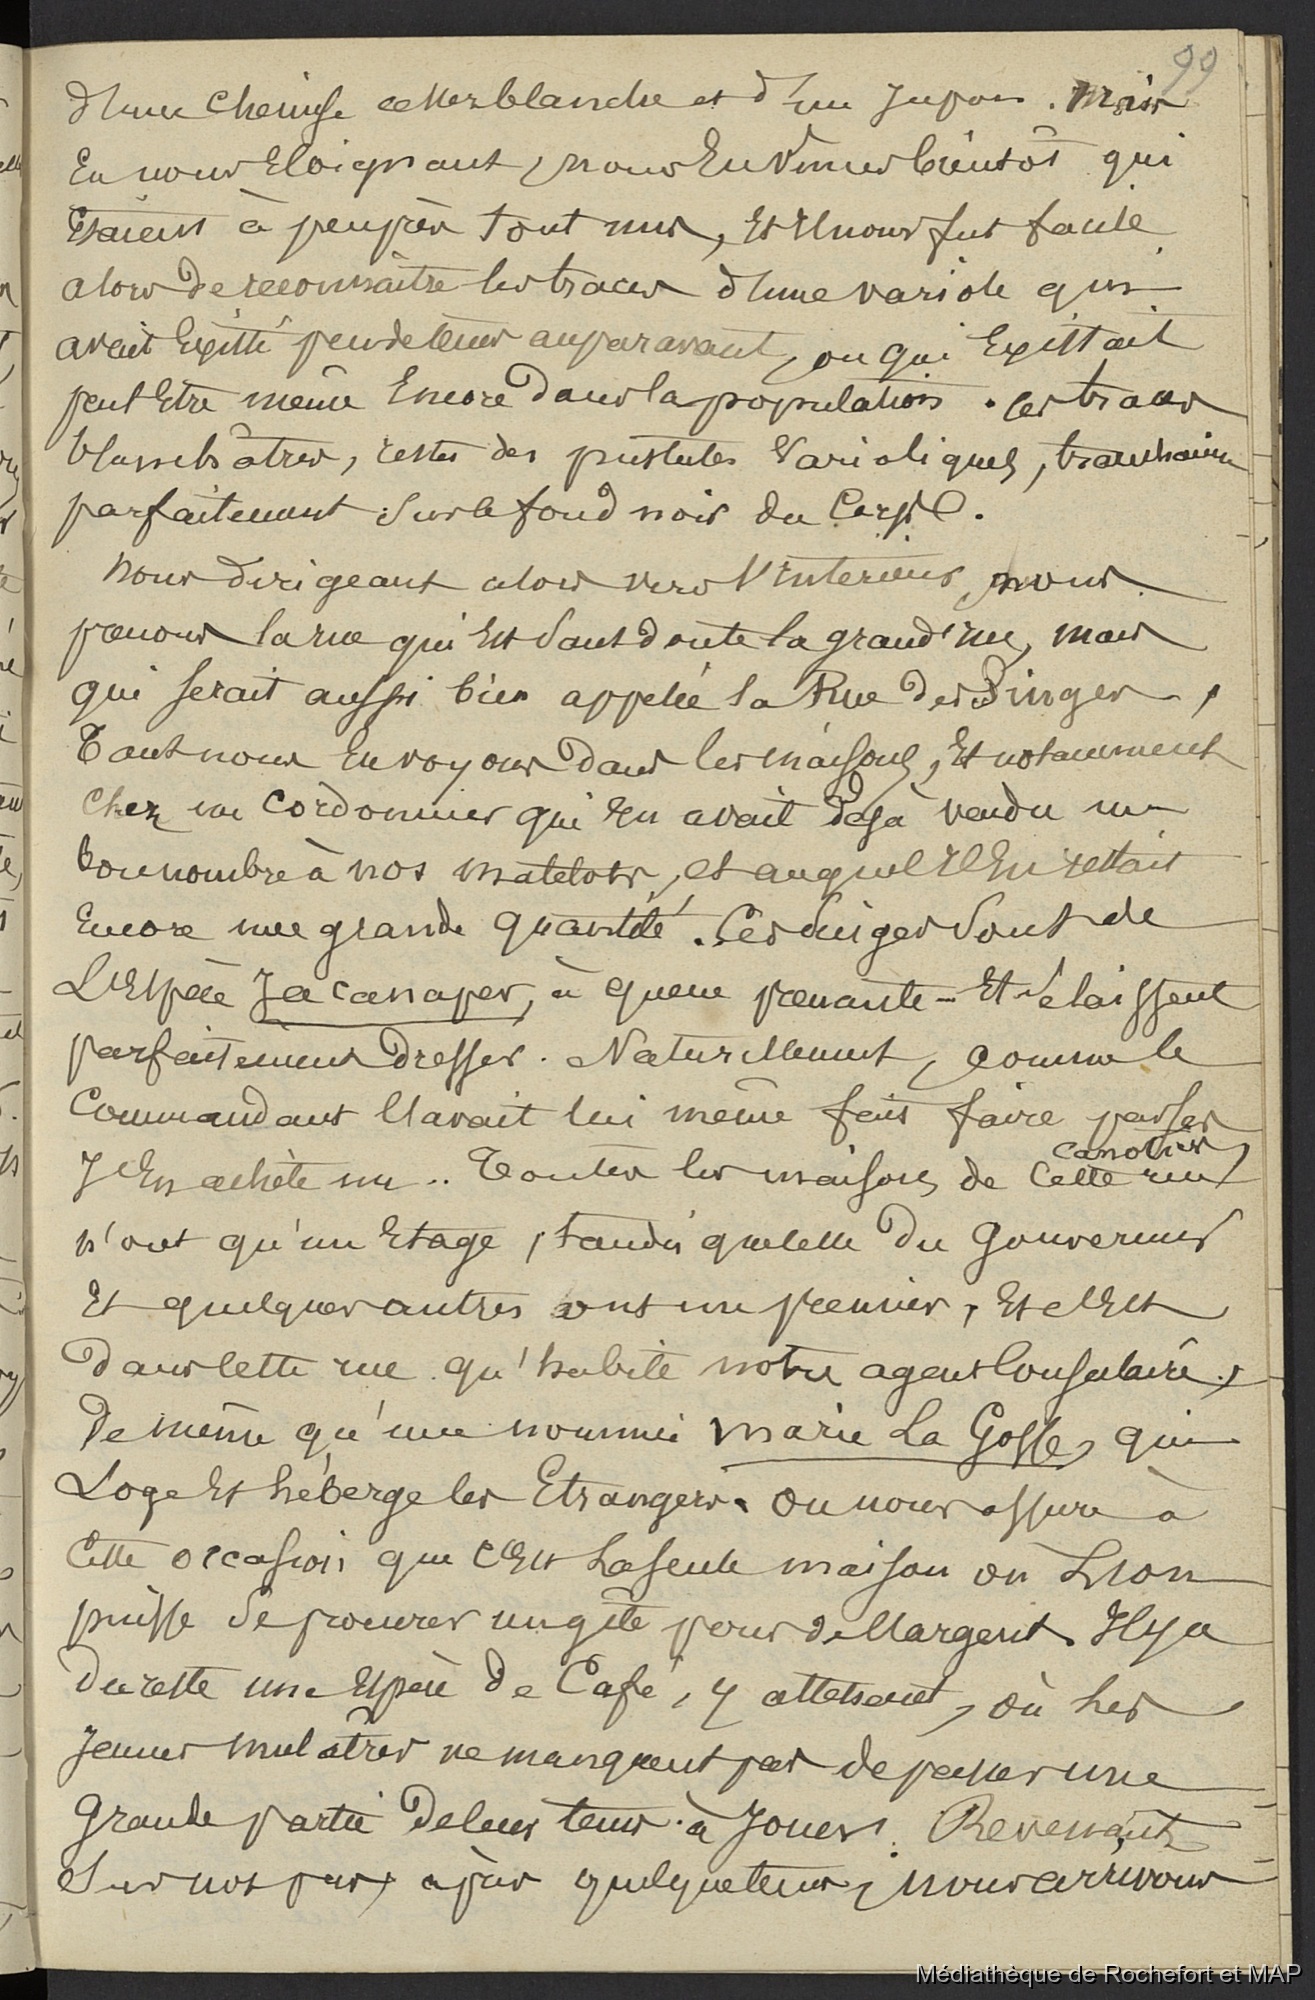 99
d'une chemise assez blanche et d'un jupon. Mais
En nous Eloignant, nous En vîmes bientôt qui
Etaient à peuprès tout nus, Et Il nous fut facile
alors de reconnaître les traces d'une variole qui
avait Existé peu de tems auparavant, ou qui Existait
peut Etre même Encore dans la population. Ces traces
blanchâtres, restes des pustules varioliques, tranchaient
parfaitement sur le fond noir du Corps.
Nous dirigeant alors vers l'Interieur, nous
prenons la rue qui Est sans doute la grand'rue, mais
qui serait aussi bien appelée la Rue des Singes,
Tant nous En voyons dans les maisons, Et notamment
chez un Cordonnier qui En avait déjà vendu un
bon nombre à nos matelots, et auquel Il En restait
Encore une grande quantité. Ces singes sont de
L'Espèce Jacanapes, à queue prenante - Et se laissent
parfaitement dresser. Naturellement, comme le
Commandant l'avait lui même fait faire par ses
canotiers,
J'En achète un.. Toutes les maisons de Cette rue
n'ont qu'un Etage, tandis que celle du Gouverneur
Et quelques autres ont un premier, Et c'Est
dans cette rue qu'habite notre agent Consulaire,
De même qu'une nommée Marie La Gosse, qui
Loge Et héberge les Etrangers. On nous assure à
Cette occasion que c'Est La seule maison où L'on
puisse se procurer un gîte pour de l'argent. Il y a
du reste une Espèce de Café, y attenant, où les
Jeunes mulâtres ne manquent pas de passer une
Grande partie de leur tems à Jouer. Revenant
Sur nos pas, après quelque tems, nous arrivons
Médiathèque de Rochefort et MAP